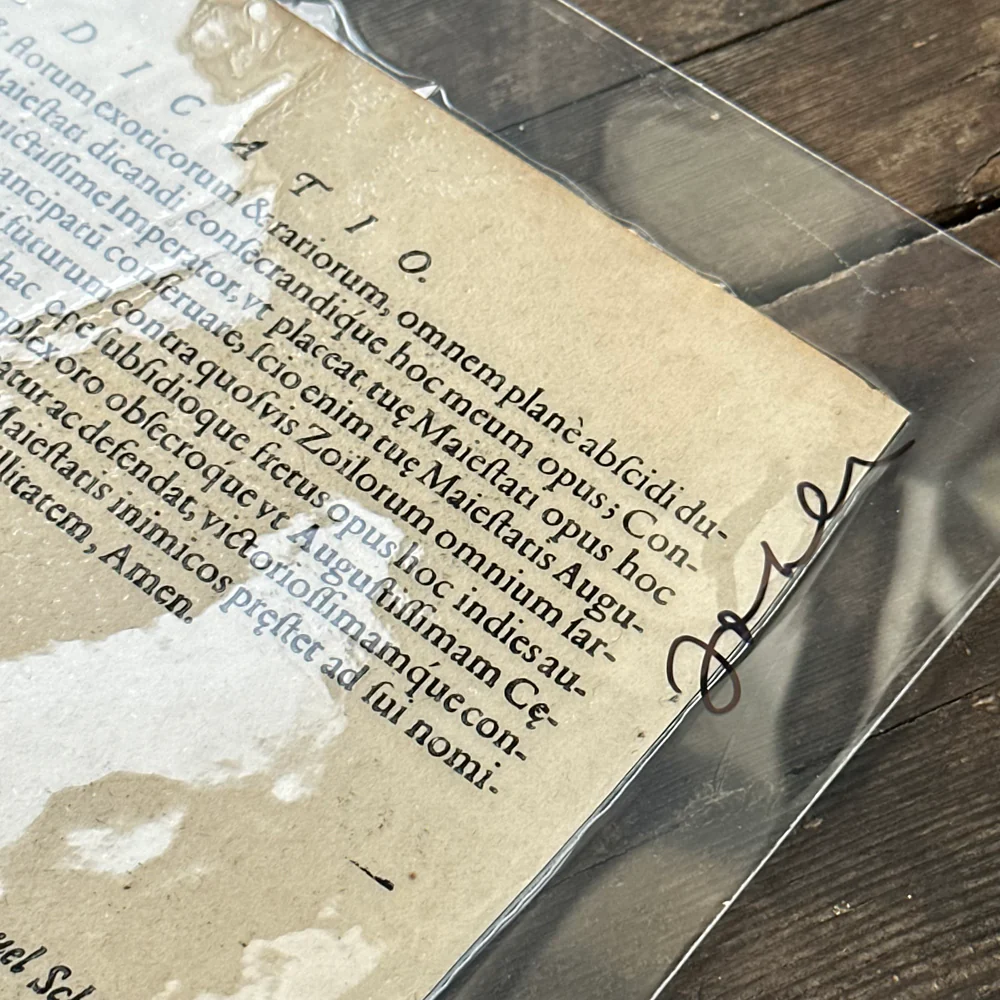 D I C A T I O.
& florum exoticorum & rariorum, omnem planè abſcidi du-
Maieſtati dicandi conſecrandiq́ue hoc meum opus; Con-
uictiſſime Imperator, vt placeat tuę Maieſtati opus hoc
ancipatū conſeruare, ſcio enim tuę Maieſtatis Augu-
futurum contra quoſvis Zoilorum omnium far-
hac ſpe ſubſidioque fretus opus hoc indies au-
plexoro obſecroq́ue vt Auguſtiſſimam Cę-
ac defendat, victorioſiſſimamq́ue con-
Maieſtatis inimicos pręſtet ad ſui nomi-
llitatem, Amen.
uel Sch